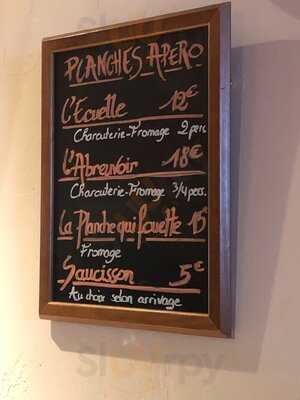 PLANCHES APERO
L'Ecuelle 12€
Charcuterie-Fromage 2 pers
L'Abreuvoir 18€
Charcuterie-Fromage 3/4 pers.
La Planche qui fouette 15
Fromage
Saucisson 5€
Au choix selon arrivage